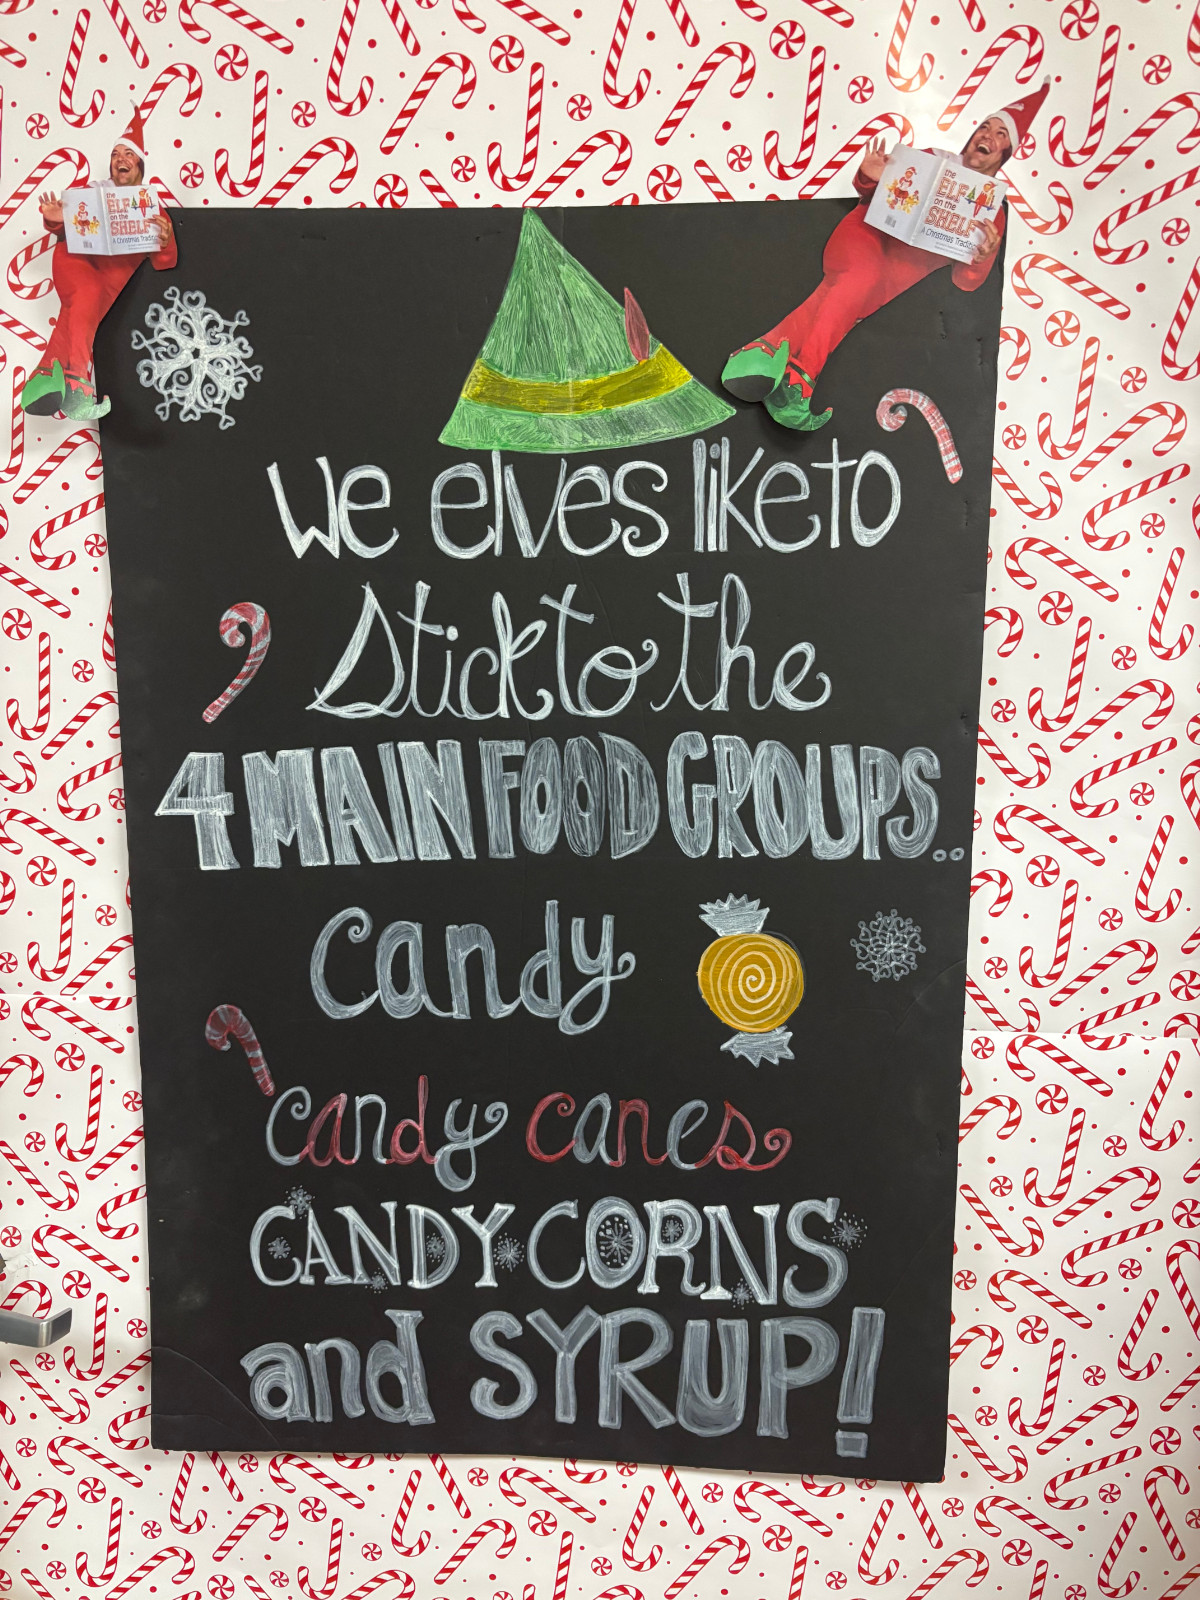 the
ELF
on the
SHELF
A Christmas Tradition
the
ELF
on the
SHELF
A Christmas Tradition
We elves like to
Stick to the
4 MAIN FOOD GROUPS..
Candy
Candy canes
CANDY CORNS
and SYRUP!